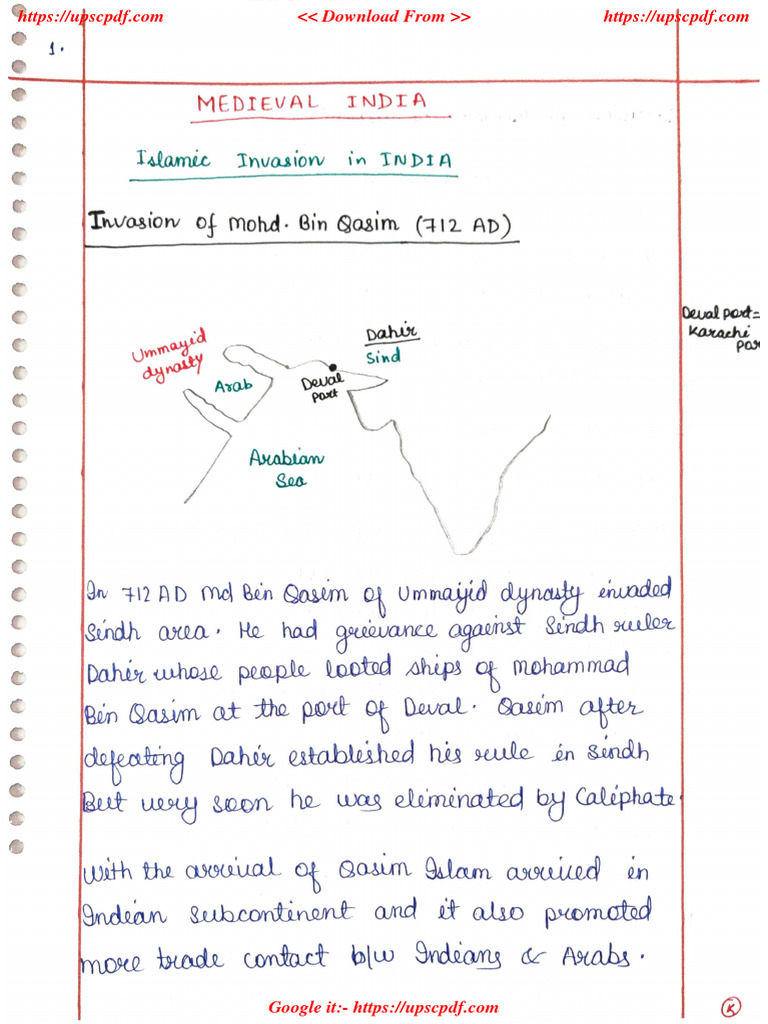 https://upscpdf.com << Download From >> https://upscpdf.com
1.
MEDIEVAL INDIA
Islamic Invasion in INDIA
Invasion of Mohd. Bin Qasim (712 AD)
Deval port =
Karachi
por
Ummayid
dynasty
Arab
Dahir
Sind
Deval
port
Arabian
Sea
In 712 AD Md Bin Qasim of Ummayid dynasty invaded
Sindh area. He had grievance against Sindh ruler
Dahir whose people looted ships of Mohammad
Bin Qasim at the port of Deval. Qasim after
defeating Dahir established his rule in Sindh
But very soon he was eliminated by Caliphate.
With the arrival of Qasim Islam arrived in
Indian Subcontinent and it also promoted
more trade contact b/w Indians & Arabs.
K
Google it:- https://upscpdf.com